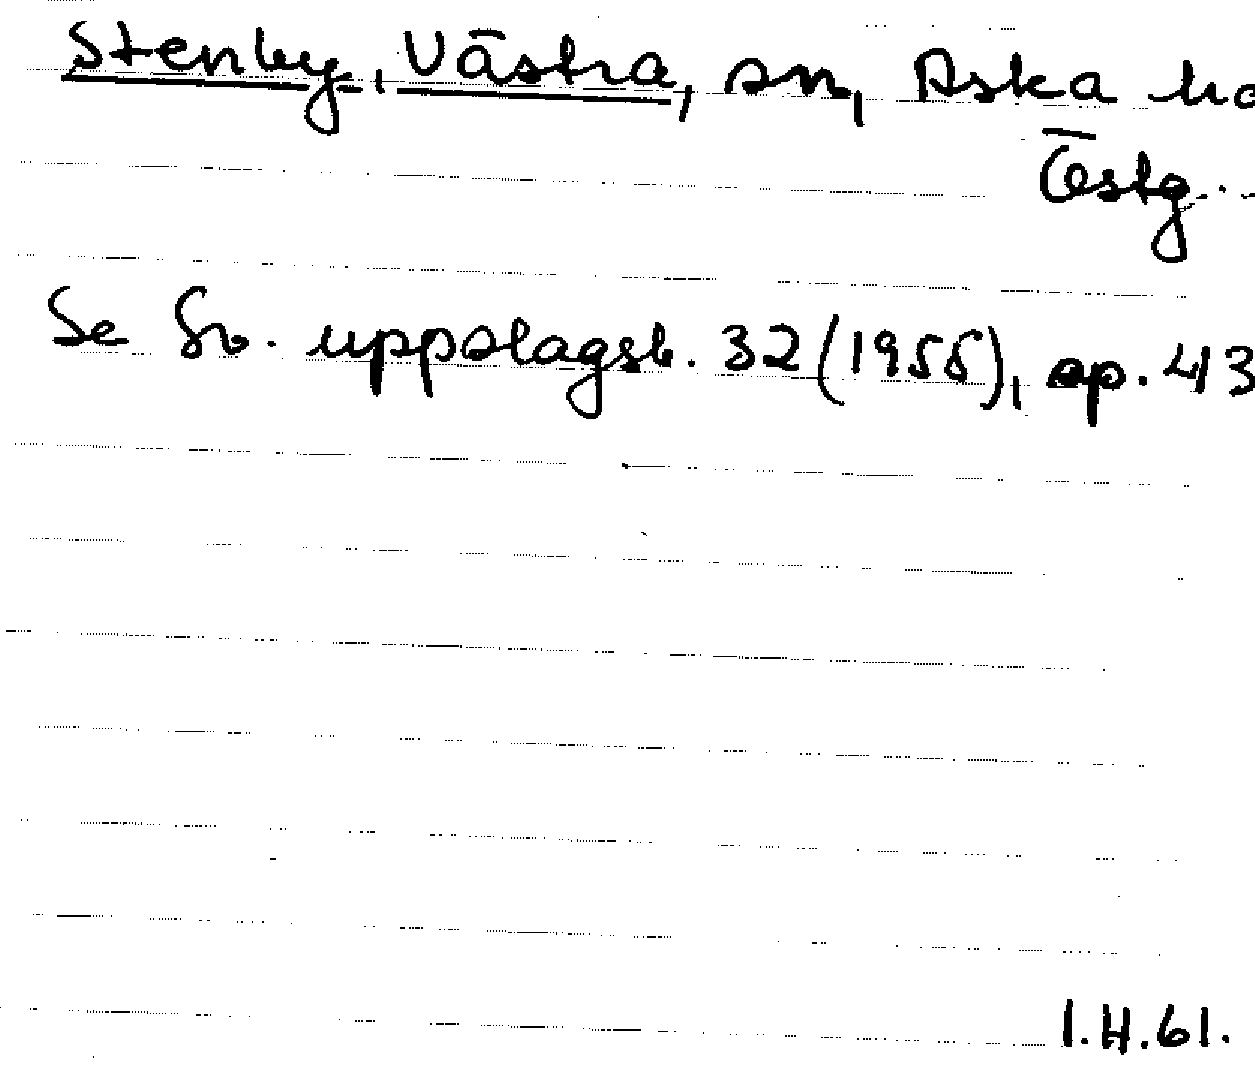 Stenby, Västra, sn, Aska ha
Östg.
Se Sv. uppslagsb. 32 (1955), sp. 43
1.H.61.